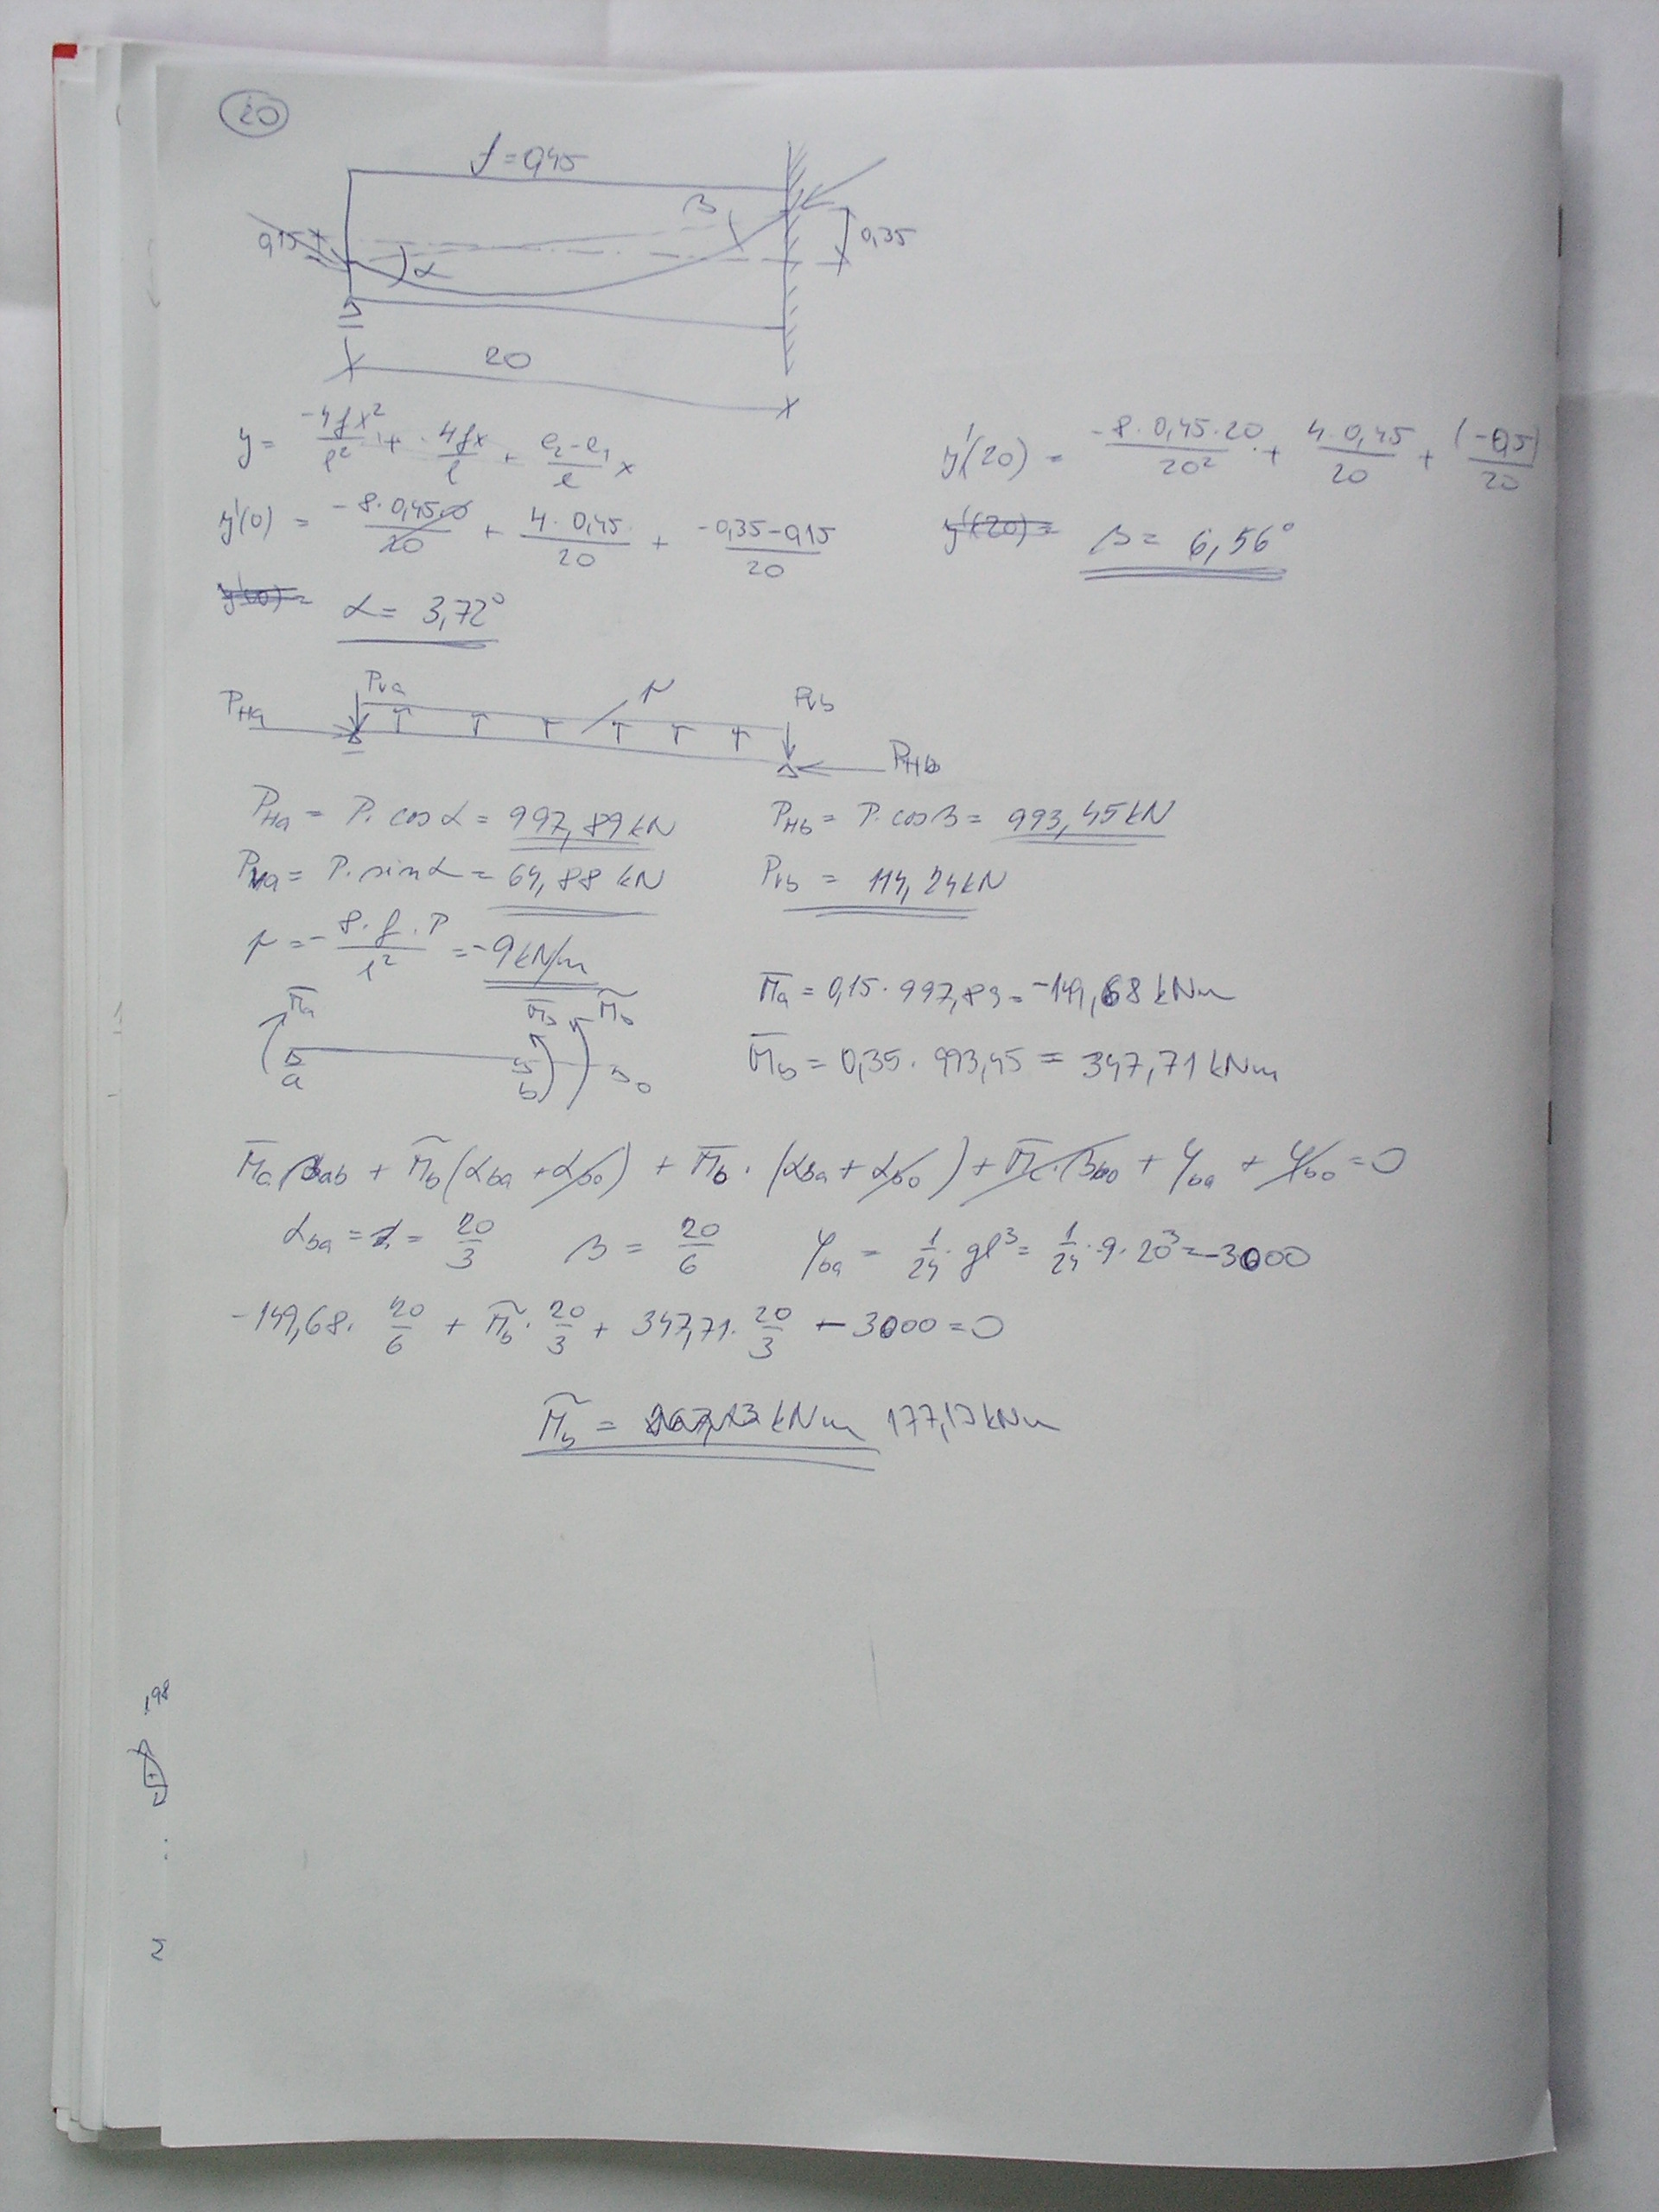 20
f = 0,45
β
0,15
0,35
α
20
y = -4fx²/l² + 4fx/l + e₂-e₁/l x
y'(20) = -8·0,45·20/20² + 4·0,45/20 + (-0,5)/20
y'(0) = -8·0,45·0/20 + 4·0,45/20 + -0,35-0,15/20
y'(20) = β = 6,56°
y'(0) = α = 3,72°
Pva
r
Pvb
PHa
PHb
PHa = P·cosα = 997,89 kN
PHb = P·cosβ = 993,45 kN
Pva = P·sinα = 64,88 kN
Pvb = 114,24 kN
r = - 8·f·P/l² = -9 kN/m
M̄a = 0,15·997,89 = -149,68 kNm
M̄a M̄b M̃b
a b 0
M̄b = 0,35·993,45 = 347,71 kNm
M̄a βab + M̃b (αba + αb0) + M̄b · (αba + αb0) + M̄c · βb0 + φba + φb0 = 0
αba = α = 20/3 β = 20/6 φba = 1/24 · gl³ = 1/24 · 9 · 20³ = -3000
-149,68 · 20/6 + M̃b · 20/3 + 347,71 · 20/3 - 3000 = 0
M̃b = kNm 177,13 kNm
,98
+
2